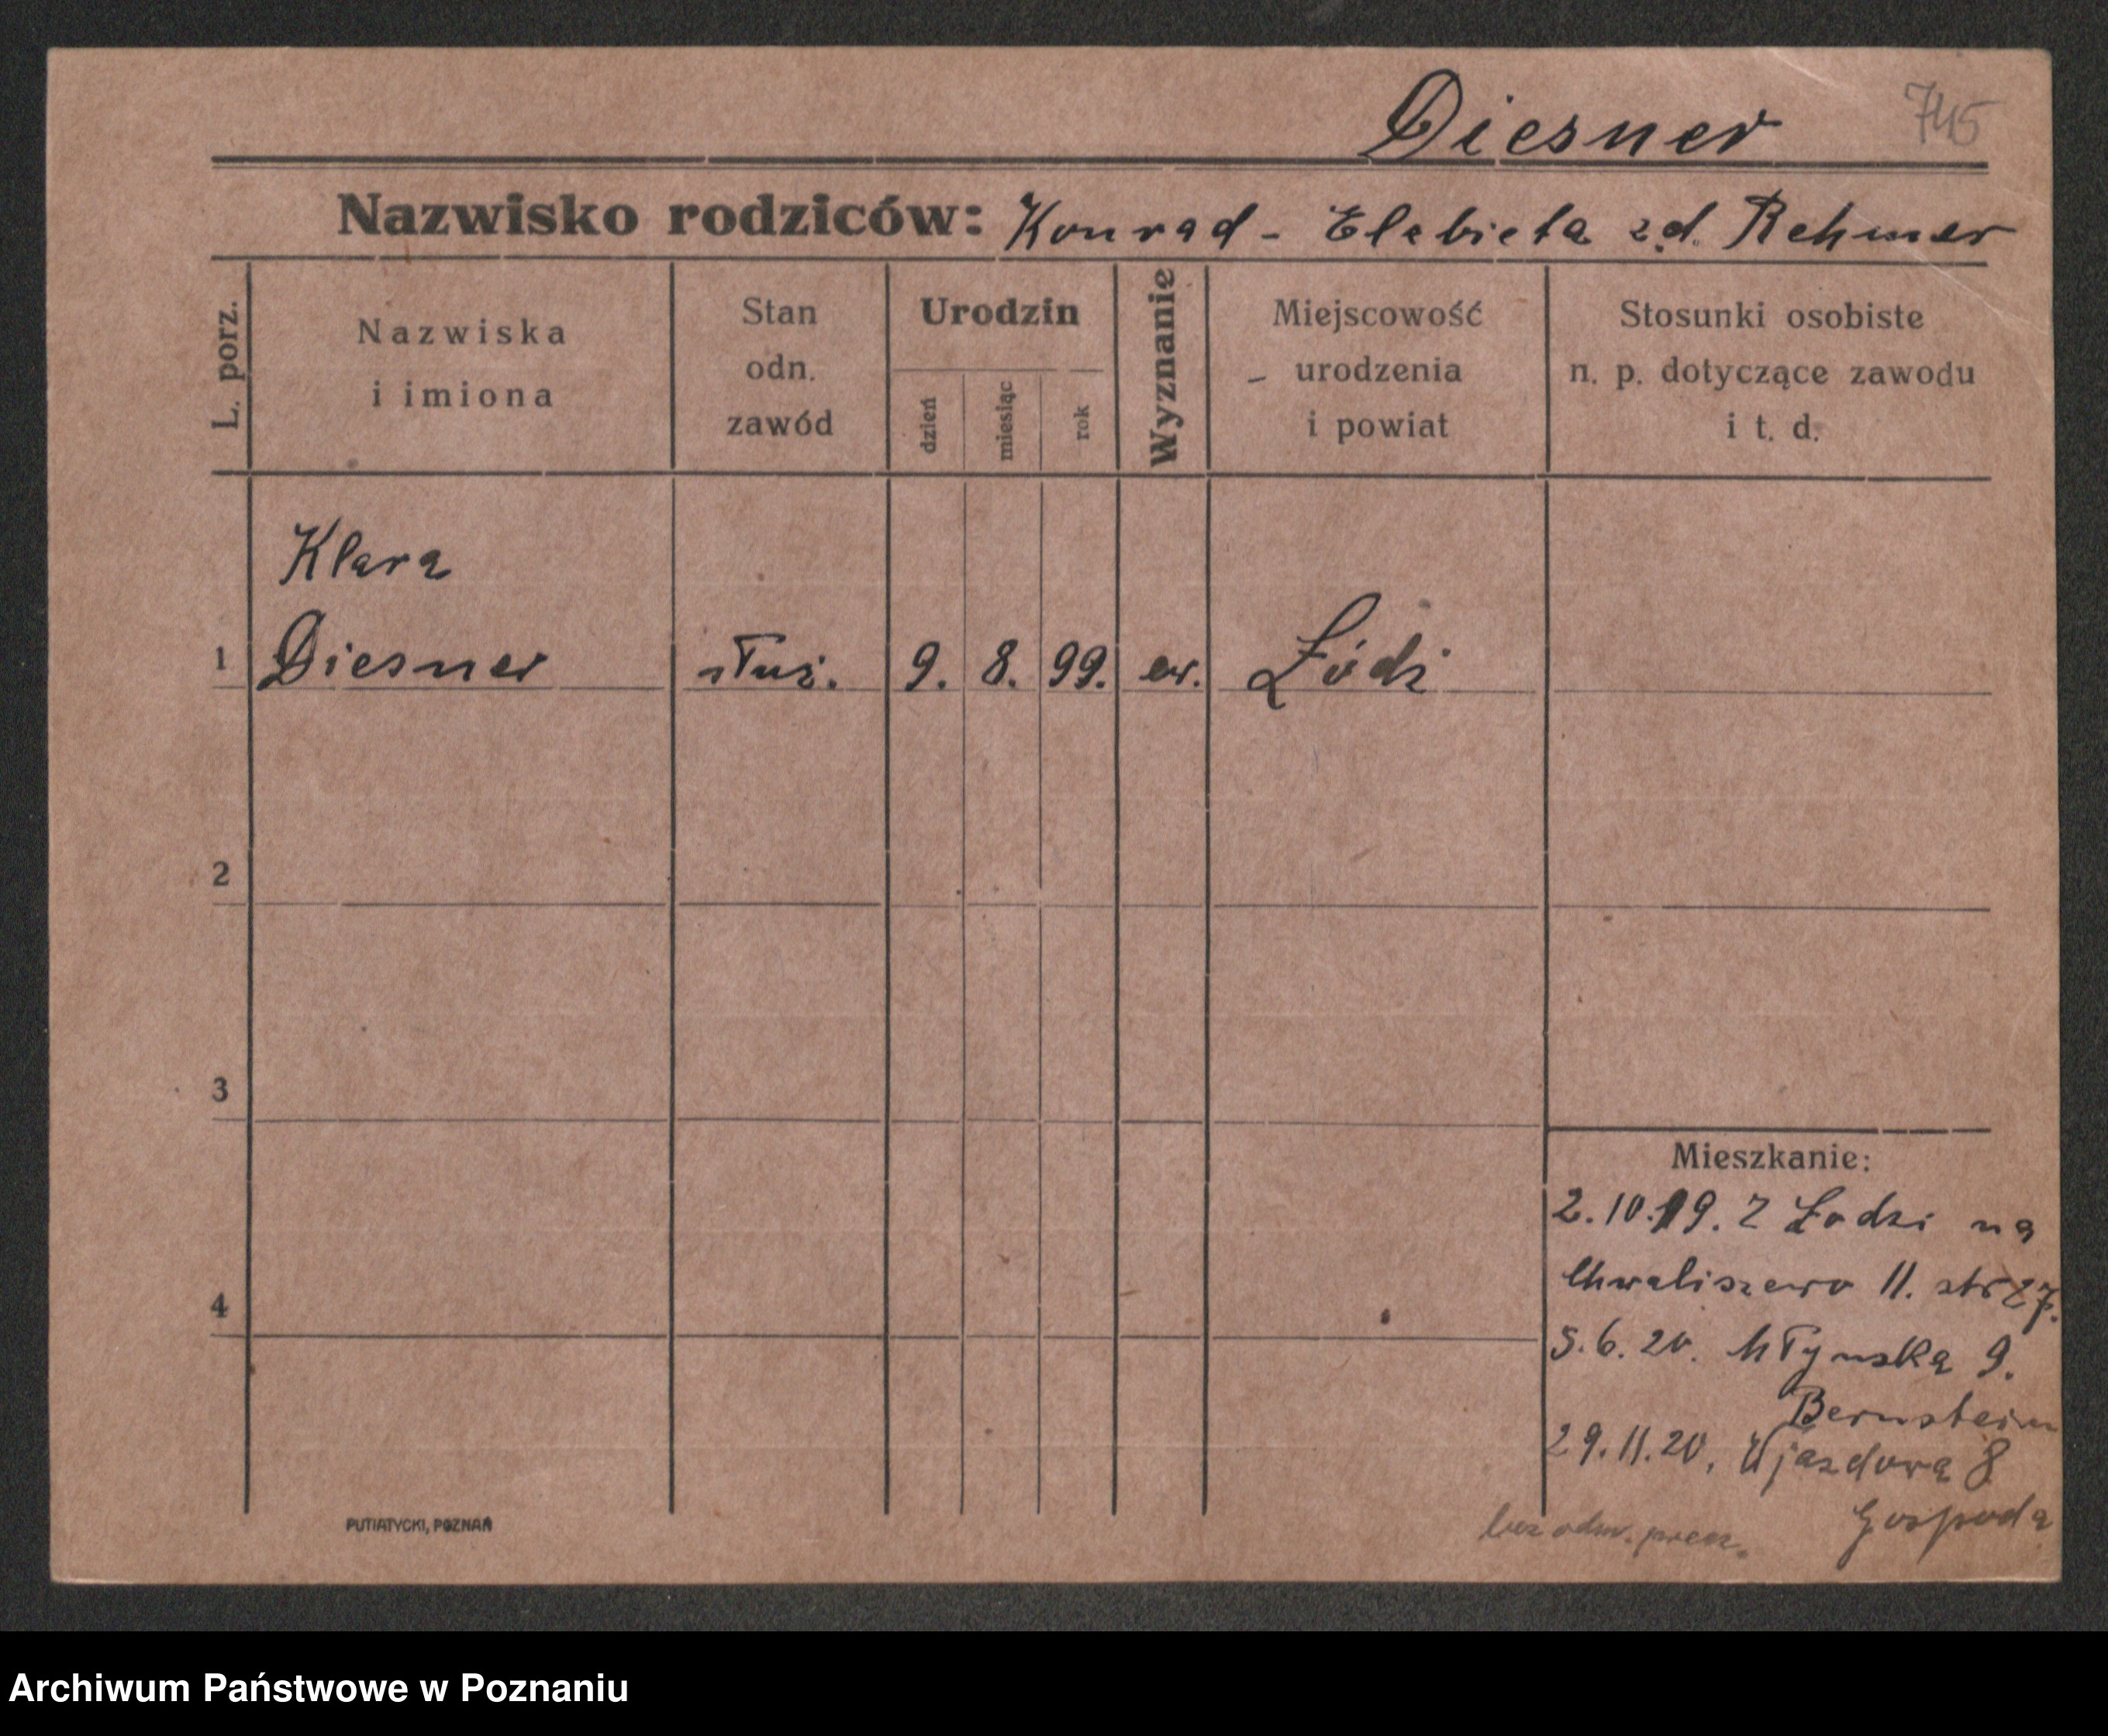 Diesner 745
Nazwisko rodziców: Konrad - Elsbieta zd. Rehmer
L. porz.
Nazwiska
i imiona
Stan
odn.
zawód
Urodzin
dzień
miesiąc
rok
Wyznanie
Miejscowość
urodzenia
i powiat
Stosunki osobiste
n. p. dotyczące zawodu
i t. d.
Klara
1 Diesner służ. 9. 8. 99. ew. Łódź
2
3
4
Mieszkanie:
2.10.19. Z Łodzi na
Chwaliszewo 11. str
5.6.20. Młyńska 9.
Bernstein
29.11.20. Ujazdowa 8
Gospoda
bez odm.
PUTIATYCKI, POZNAŃ
Archiwum Państwowe w Poznaniu